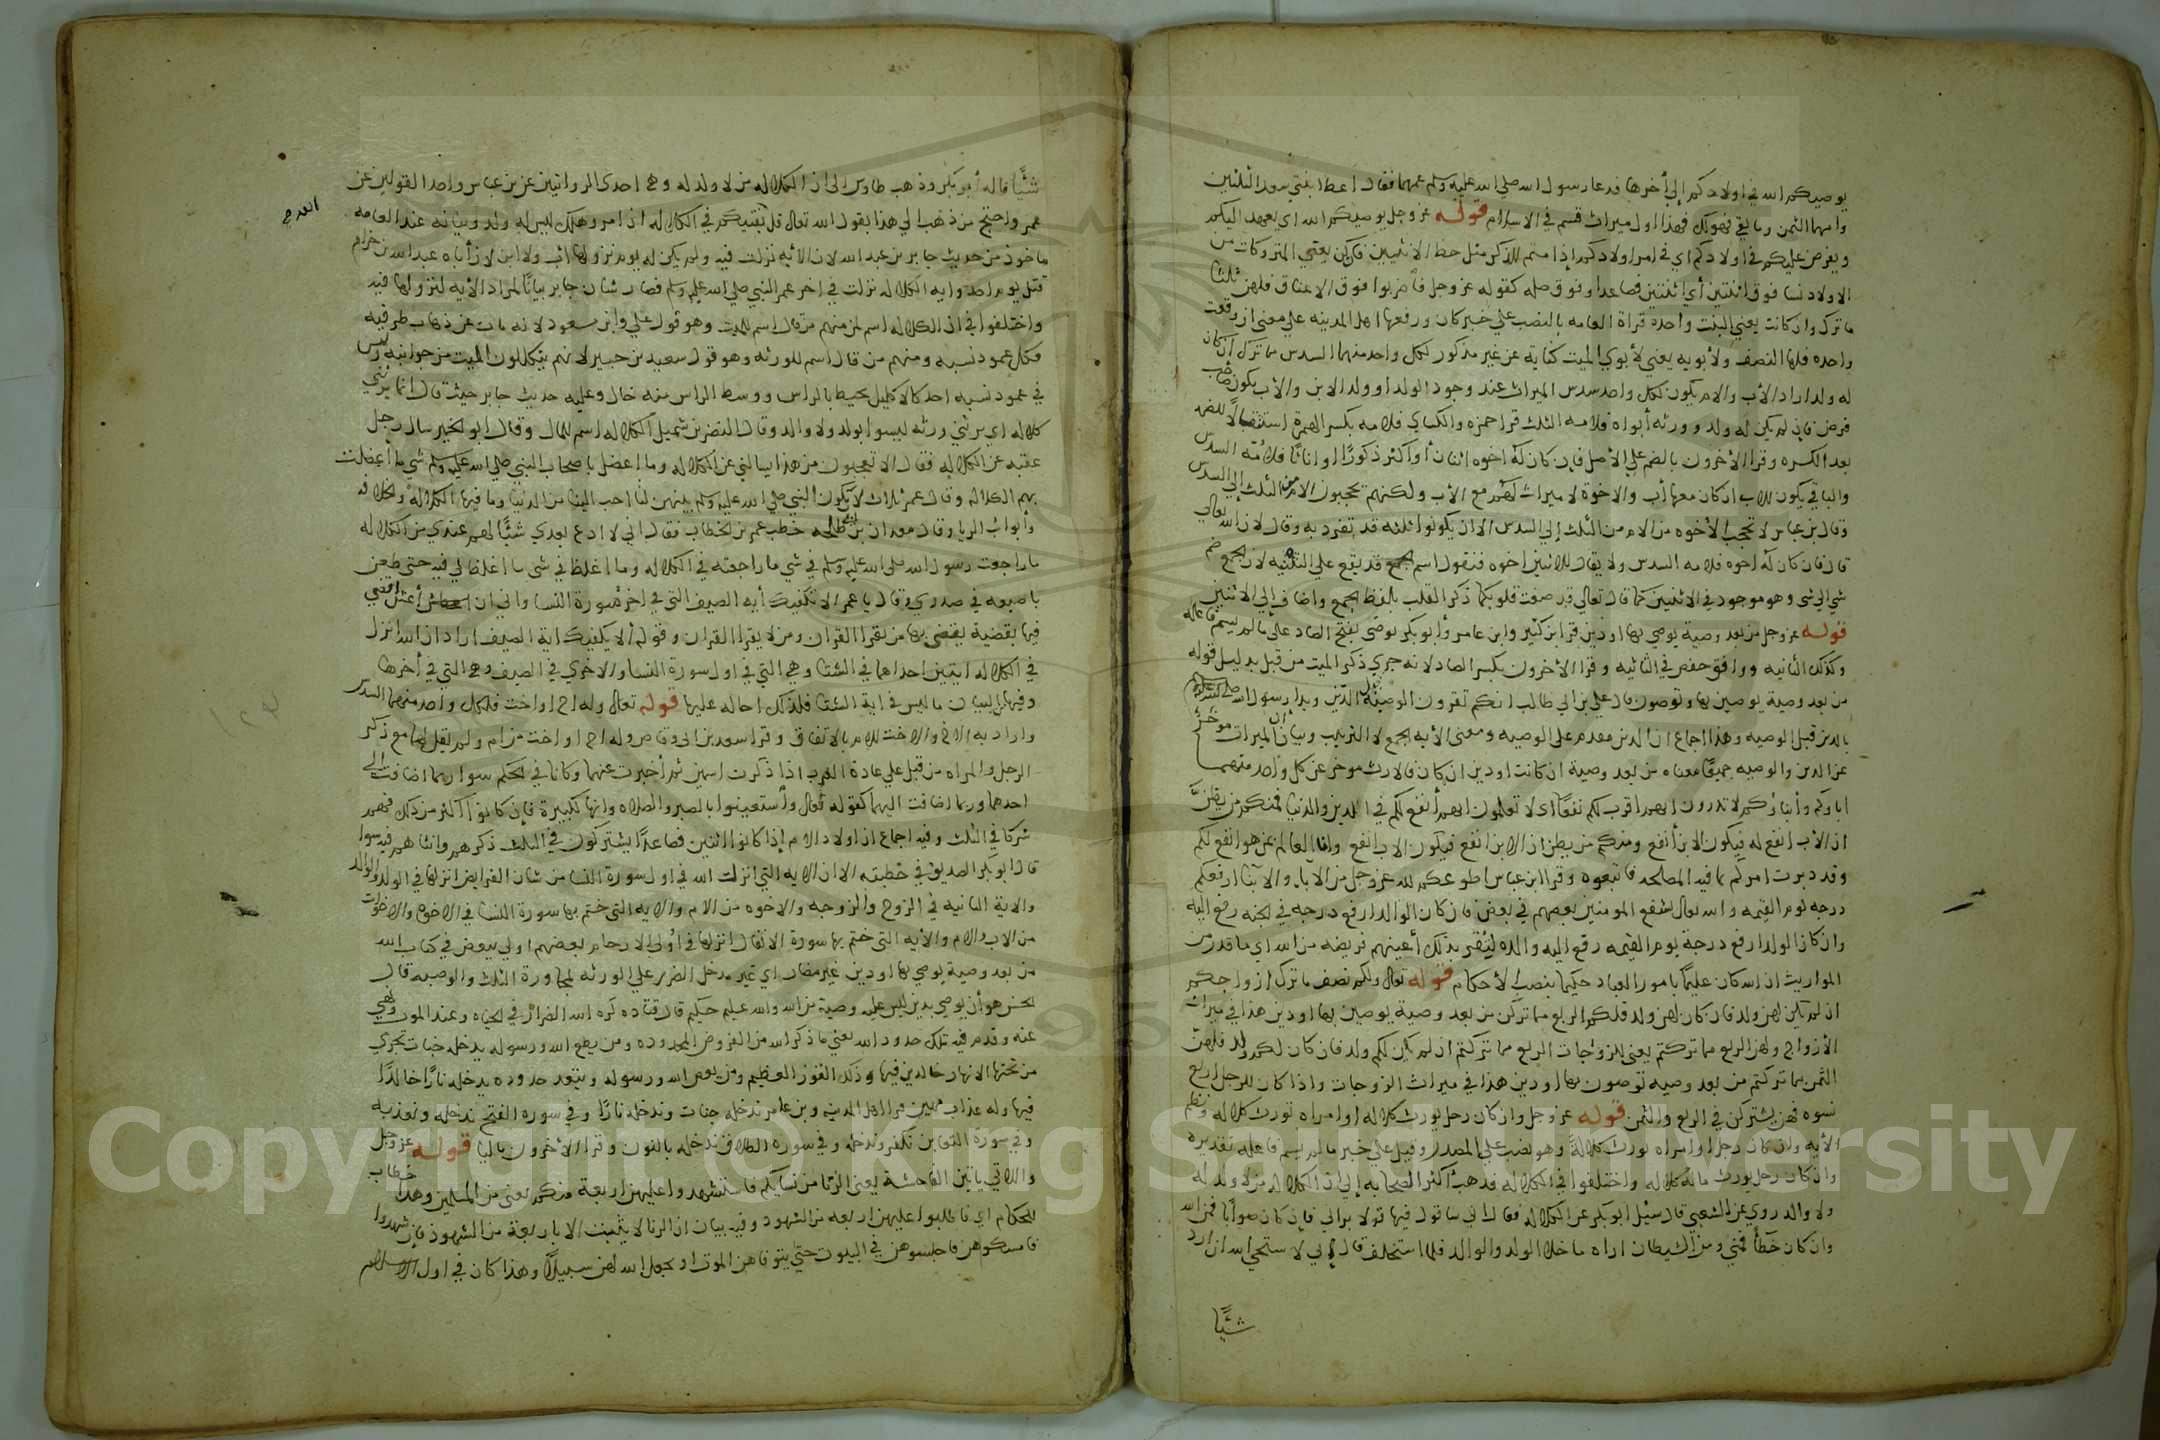 يوصيكم الله في اولادكم إلى أخرها فدعا رسول الله صلي الله عليه وسلم عمهما فقال اعط ابنتي سعد الثلثين
وامهما الثمن وما بقي فهولك فهذا اول ميراث قسم في الاسلام قوله عزوجل يوصيكم الله اي يعهد اليكم
ويفرض عليكم في اولادكم اي في امر اولادكم إذا متم للذكر مثل حظ الانثيين فان كن يعني المتروكات من
الاولاد نسا فوق اثنتين أي اثنتين فصاعدا وفوق صله كقوله عزوجل فاضربوا فوق الاعناق فلهن ثلثا
ما ترك وان كانت يعني البنت واحدة قراة العامه بالنصب علي خبر كان ورفعها اهل المدينه علي معني ان وقعت
واحده فلها النصف ولأبويه يعني لأبوي الميت كناية عن غير مذكور لكل واحد منهما السدس مما ترك ان كان
له ولد اراد الأب والام يكون لكل واحد سدس الميراث عند وجود الولد او ولد الابن والأب يكون صاحب
فرض فإن لم يكن له ولد وورثه أبواه فلامه الثلث قرا حمزه والكساي فلامه بكسر الهمزة استثقالا للضمه
بعد الكسره وقرا الأخرون بالضم علي الأصل فإن كان له اخوه اثنان أو أكثر ذكورًا او اناثًا فلامه السدس
والباقي يكون للاب ان كان معها أب والاخوة لا ميراث لهم مع الأب ولكنهم يحجبون الام من الثلث إلى السدس
وقال بن عباس لا تحجب الأخوه من الام من الثلث إلى السدس الا ان يكونوا ثلثه قد تفرد به وقال لان الله تعالي
قال فان كان له اخوه فلامه السدس ولا يقال للاثنين اخوه فنقول اسم الجمع قد يقع علي التثنيه لان الجمع ضم
شي الى شي وهو موجود في الاثنين كما قال تعالي فقد صغت قلوبكما ذكر القلب بلفظ الجمع واضافه إلى الاثنين
قوله عزوجل من بعد وصية يوصي بها اودين قرا بن كثير وابن عامر وأبو بكر يوصَى بفتح الصاد على ما لم يسم فاعله
وكذلك الثانيه ووافق حفص في الثانيه وقرا الأخرون بكسر الصاد لانه جري ذكر الميت من قبل بدليل قوله
من بعد وصية يوصين بها وتوصون قال علي بن ابي طالب انكم تقرون الوصيه قبل الدين وبدا رسول الله صلى الله عليه وسلم
بالدين قبل الوصيه وهذا اجماع ان الدين مقدم على الوصيه ومعني الأيه الجمع لا الترتيب وبيان ان الميراث موخر
عن الدين والوصيه جميعًا معناه من بعد وصية ان كانت اودين ان كان فالارث موخر عن كل واحد منهما
اباوكم وأبناؤكم لا تدرون ايهم اقرب لكم نفعًا اي لا تعلمون ايهم أنفع لكم في الدين والدنيا فمنكم من يظن
ان الأب انفع له فيكون الابن أنفع ومنكم من يظن ان الابن انفع فيكون الاب انفع وانا العالم بمن هو انفع لكم
وقد دبرت امركم بما فيه المصلحه فاتبعوه وقال ابن عباس اطوعكم لله عزوجل من الآباء والابناء ارفعكم
درجه يوم القيمه والله تعالى يشفع المومنين بعضهم في بعض فان كان الوالد ارفع درجه في الجنه رفع اليه
وان كان الولد ارفع درجة يوم القيمه رفع اليه والده لتقر بذلك أعينهم فريضه من الله اي ما قدر من
المواريث ان الله كان عليمًا بامور العباد حكيما بنصب الأحكام قوله تعالى ولكم نصف ما ترك ازواجكم
ان لم يكن لهن ولد فان كان لهن ولد فلكم الربع مما تركن من بعد وصية يوصين بها اودين هذا في ميراث
الأزواج ولهن الربع مما تركتم يعني للزوجات الربع مما تركتم ان لم يكن لكم ولد فان كان لكم ولد فلهن
الثمن مما تركتم من بعد وصيه توصون بها اودين هذا في ميراث الزوجات واذا كان للرجل اربع
نسوه فهن يشتركن في الربع والثمن قوله عزوجل وان كان رجل يورث كلاله او امراه تورث كلاله ونظم
الأيه وان كان رجل او امراه يورث كلالة وهو نصب علي المصدر وقيل علي خبر ما لم يسم فاعله تقديره
وان كان رجل يورث ماله كلاله واختلفوا في الكلاله فذهب أكثر الصحابه إلى ان الكلاله من لا ولد له
ولا والد روي عن الشعبي قال سئل ابو بكر عن الكلاله فقال اني ساقول فيها قولا برائي فإن كان صوابًا فمن الله
وان كان خطأ فمني ومن الشيطان اراه ما خلا الولد والوالد فلما استخلف قال إني لا ستحي الله ان ارد
شيًّا
شيًّا قاله أبو بكر وذهب طاوس الى ان الكلاله من لا ولد له وهي احدى الروايتين عن بن عباس واحد القولين عن
عمر واحتج من ذهب الي هذا بقول الله تعالى قل الله يفتيكم في الكلاله ان امرو هلك ليس له ولد وبيانه عند العامه
ماخوذ من حديث جابر بن عبد الله لان الأيه نزلت فيه ولم يكن له يوم نزولها اب ولا ابن لان أباه عبد الله بن حرام
قتل يوم احد وايه الكلاله نزلت في اخر عمر النبي صلي الله عليه وسلم فصار شان جابر بيانًا لمراد الأيه لنزولها فيه
واختلفوا في ان الكلاله اسم لمن منهم من قال اسم للميت وهو قول علي وابن مسعود لانه مات عن ذهاب طرفيه
فكل عمود نسبه ومنهم من قال اسم للورثه وهو قول سعيد بن جبير لانهم يتكللون الميت من جوانبه وليس
في عمود نسبه احد كالاكليل يحيط بالراس ووسط الراس منه خال وعليه حديث جابر حيث قال انما يرثني
كلاله اي يرثني ورثه ليسوا بولد ولا والد وقال النضر بن شميل الكلاله اسم للمال وقال ابو الخير سال رجل
عقبه عن الكلاله فقال الا تعجبون من هذا يسالني عن الكلاله وما اعضل باصحاب النبي صلي الله عليه وسلم شي ما أعضلت
بهم الكلاله وقال عمر ثلاث لان يكون النبي صلي الله عليه وسلم بينهن لنا احب الينا من الدنيا وما فيها الكلاله والخلافه
وأبواب الربا وقال معدان بن ابي طلحه خطب عمر بن الخطاب فقال اني لا ادع بعدي شيًّا اهم عندي من الكلاله
ما راجعت رسول الله صلي الله عليه وسلم في شي ما راجعته في الكلاله وما اغلظ في شي ما اغلظ لي فيه حتي طعن
باصبعه في صدري وقال يا عمر الا تكفيك أيه الصيف التي في اخر سورة النسا واني ان اعش اقضي
فيها بقضية يقضي بها من يقرا القران ومن لا يقرا القران وقوله ألا يكفيك اية الصيف اراد ان الله انزل
في الكلاله ايتين احداهما في الشتا وهي التي في اول سورة النسا والاخري في الصيف وهي التي في أخرها
وفيها من البيان ما ليس في اية الشتا فلذلك احاله عليها قوله تعالى وله اخ او اخت فلكل واحد منهما السدس
واراد به الاخ والاخت للام بالاتفاق وقرا سعد بن ابي وقاص وله اخ او اخت من ام ولم يقل لهما مع ذكر
الرجل والمراه من قبل علي عادة العرب اذا ذكرت اسمين ثم أخبرت عنهما وكانا في الحكم سوا ربما اضافت إلى
احدهما وربما اضافت اليهما كقوله تعالى واستعينوا بالصبر والصلاه وانها لكبيرة فإن كانوا أكثر من ذلك فهم
شركا في الثلث وفيه اجماع ان اولاد الام إذا كانوا اثنين فصاعدًا يشتركون في الثلث ذكرهم وانثاهم فيه سوا
قال ابو بكر الصديق في خطبته الا ان الايه التي انزلت الله في اول سورة النسا من شان الفرايض انزلها في الولد والوالد
والاية الثانيه في الزوج والزوجه والاخوه من الام والايه التي ختم بها سورة النسا في الاخوه والاخوات
من الاب والام والأيه التي ختم بها سورة الانفال انزلها في أولي الارحام بعضهم اولي ببعض في كتاب الله
من بعد وصية يوصي بها اودين غير مضار اي غير مدخل الضرر علي الورثه بمجاورة الثلث والوصيه قال
الحسن هو أن يوصي بدين ليس عليه وصية من الله والله عليم حكيم قال قتاده كره الله الضرار في الحياه وعند الموت ونهي
عنه وقدم فيه تلك حدود الله يعني ما ذكر الله من الفروض المحدوده ومن يطع الله ورسوله يدخله جنات تجري
من تحتها الانهار خالدين فيها وذلك الفوز العظيم ومن يعص الله ورسوله ويتعد حدوده يدخله نارًا خالدًا
فيها وله عذاب مهين قرا اهل المدينه وبن عامر ندخله جنات وندخله نارًا وفي سوره الفتح ندخله ونعذبه
وفي سورة التغابن نكفر وندخله وفي سوره الطلاق ندخله بالنون وقرا الأخرون باليا قوله عزوجل
واللاتي ياتين الفاحشة يعني الزنا من نسايكم فاستشهدوا عليهن اربعة منكم يعني من المسلمين وهذا خطاب
للحكام اي فاطلبوا عليهن اربعه من الشهود وفيه بيان ان الزنا لا يثبت الا باربعة من الشهود فإن شهدوا
فامسكوهن فاحبسوهن في البيوت حتي يتوفاهن الموت او يجعل الله لهن سبيلًا وهذا كان في اول الاسلام
Copyright © King Saud University